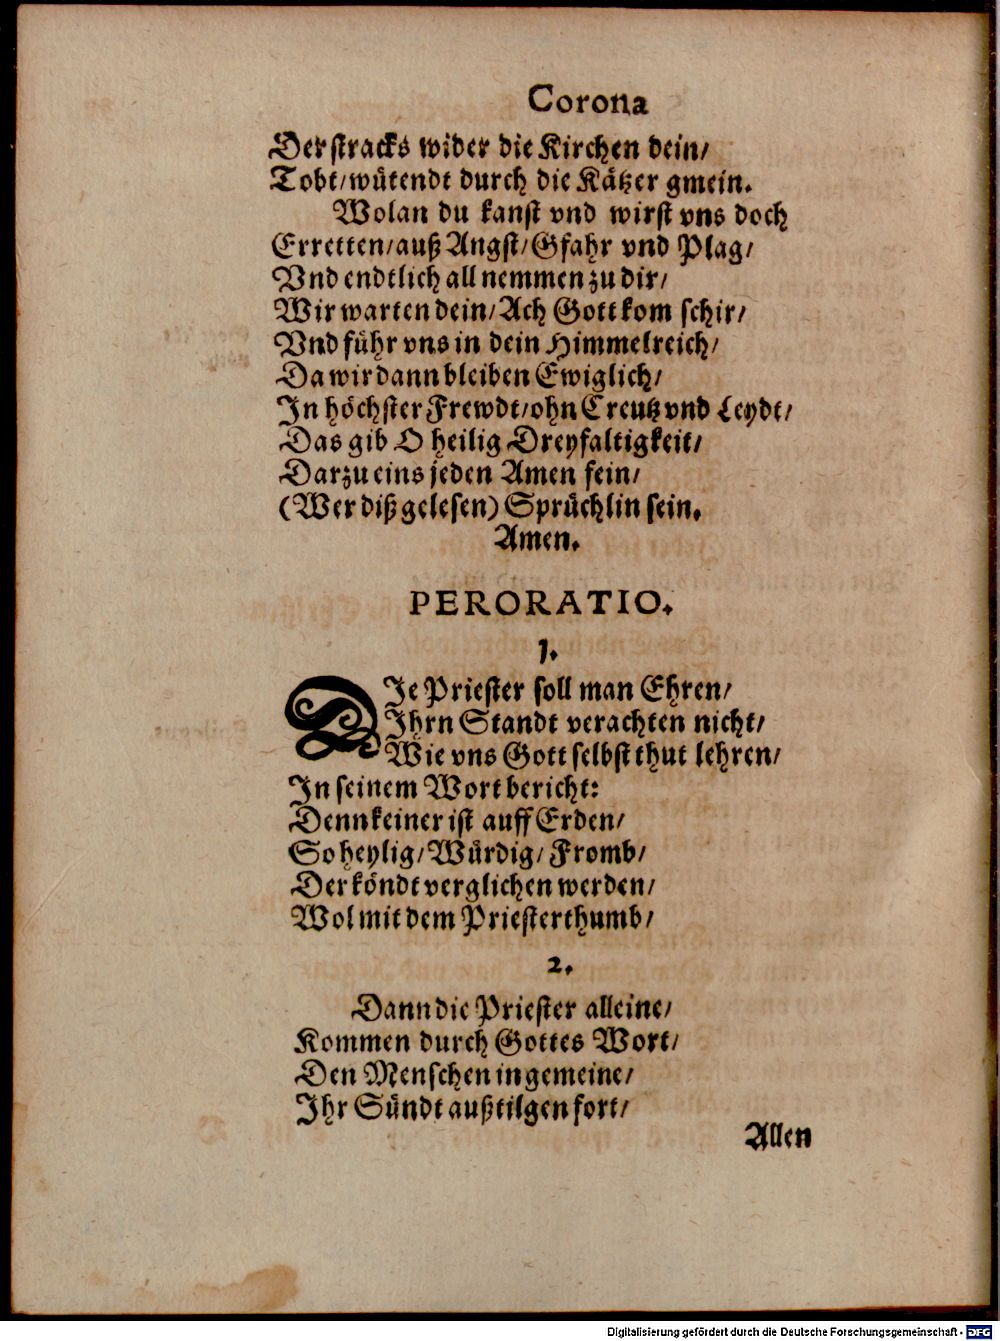 Corona
Der stracks wider die Kirchen dein/
Tobt/wütendt durch die Kätzer gmein.
Wolan du kanst vnd wirst vns doch
Erretten/auß Angst/Gfahr vnd Plag/
Vnd endtlich all nemmen zu dir/
Wir warten dein/Ach Gott kom schir/
Vnd führ vns in dein Himmelreich/
Da wir dann bleiben Ewiglich/
In höchster Frewdt/ohn Creutz vnd Leydt/
Das gib O heilig Dreyfaltigkeit/
Darzu eins jeden Amen fein/
(Wer diß gelesen) Sprüchlin sein.
Amen.
PERORATIO.
1.
DIe Priester soll man Ehren/
Ihrn Standt verachten nicht/
Wie vns Gott selbst thut lehren/
In seinem Wort bericht:
Denn keiner ist auff Erden/
So heylig/Würdig/Fromb/
Der köndt verglichen werden/
Wol mit dem Priesterthumb/
2.
Dann die Priester alleine/
Kommen durch Gottes Wort/
Den Menschen in gemeine/
Ihr Sündt außtilgen fort/
Allen
Digitalisierung gefördert durch die Deutsche Forschungsgemeinschaft - DFG